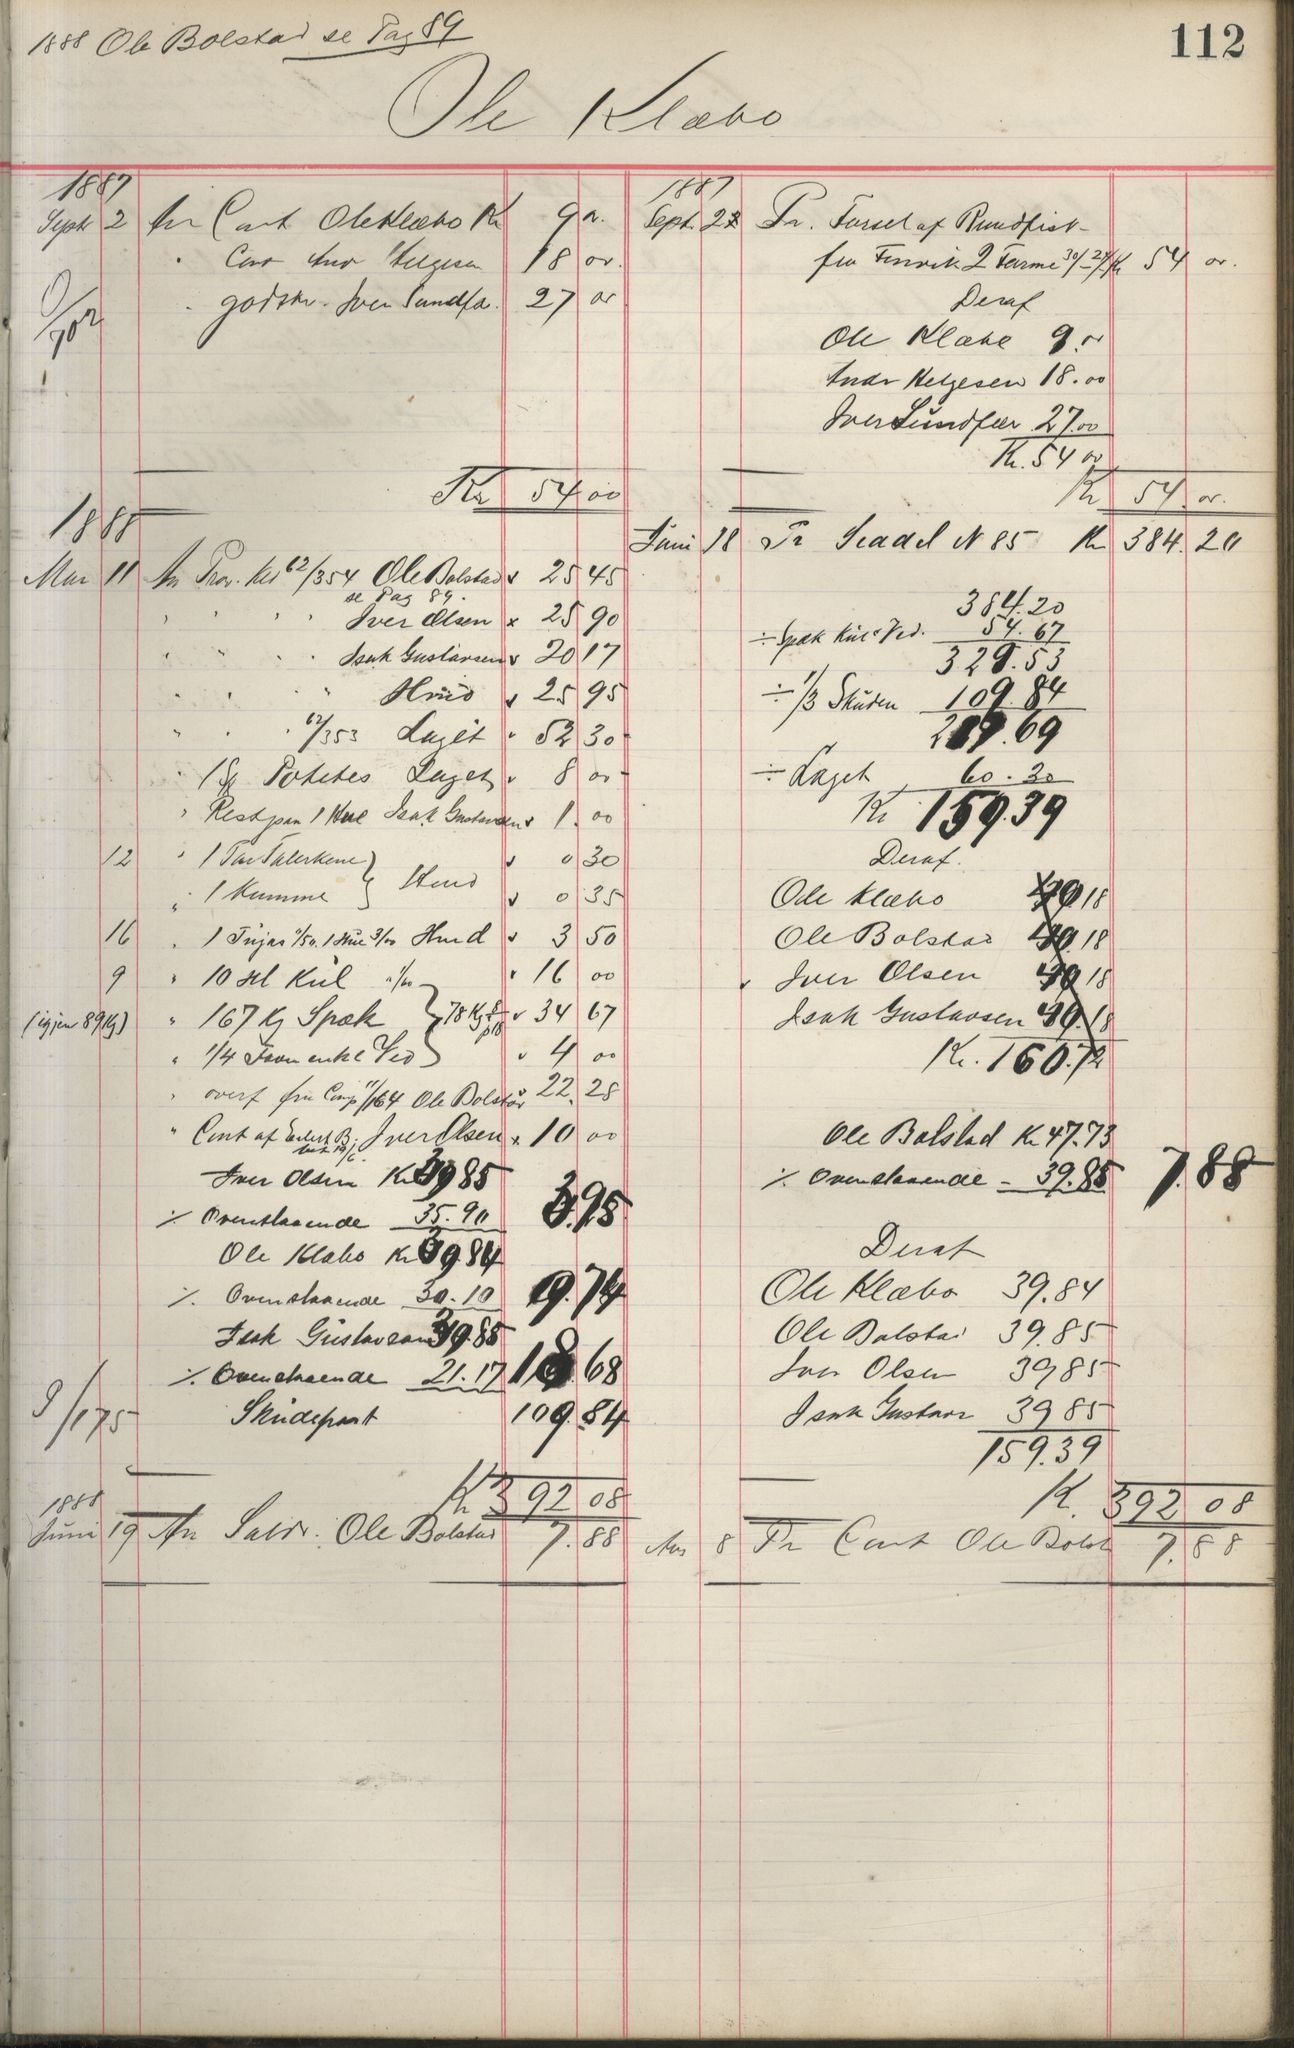 1888 Ole Bolstad se Pag 89
112
Ole Klæbo
1887
Sept 2 An Cont Ole Klæbo Kr 9 00
" Cont Andr Helgesen 18 00
" godskr. Iver Sundfær 27 00
9/702
Kr 54 00
1888
Mar 11 An Prov. Red 62/354 Ole Bolstad 25 45
se Pag 89.
" " " " Iver Olsen 25 90
" " " " Isak Gustavsen 20 17
" " " " Huus 25 95
" " 62/353 Laget 52 30
" 1 Potetes Laget 8 00
" Rest paa 1 Hue Isak Gustavsen 1.00
12 " 1 Par Talerkene } Huus 0 30
" 1 Kumme 0 35
16 " 1 Trøjar /50. 1 Hue 3/00 Huus 3 50
9 " 10 Hl Kul 16 00
(igjen 89 Kg) " 167 Kg Spæk } 78 Kg 34 67
" 1/4 Favn enkl Ved 4 00
" overf fra Conp 11/164 Ole Bolstad 22.28
" Cont af Iver Olsen 10 00
Iver Olsen Kr 39 85
% Ovenstaaende 35.90 3.95
Ole Klæbo Kr 39.84
% Ovenstaaende 30.10 9.74
Isak Gustavsen 39.85
% Ovenstaaende 21.17 18.68
9/175
Skudepart 109.84
Kr 392 08
1888
Juni 19 An Saldo. Ole Bolstad 7.88
1887
Sept. 22 Pr. Førsel af Rundfisk
fra 2 Turme Kr 54 00.
Deraf
Ole Klæbo 9.00
Andr Helgesen 18.00
Iver Sundfær 27.00
Kr. 54 00
Kr 54 00.
Juni 18 Pr Seddel N 85 Kr 384.20
384.20
÷ Spæk Kul & Ved. 54.67
329.53
÷ 1/3 Skuden 109.84
219.69
÷ Laget 60.30
Kr 159.39
Deraf.
Ole Klæbo 40 18
Ole Bolstad 40.18
Iver Olsen 40 18
Isak Gustavsen 40.18
Kr. 160.72
Ole Bolstad Kr 47.73
% Ovenstaaende - 39.85 7.88
Deraf
Ole Klæbo 39.84
Ole Bolstad 39.85
Iver Olsen 39 85
Isak Gustavs 39 85
159.39
Kr. 392 08
8 Pr Cont Ole Bolst 7.88